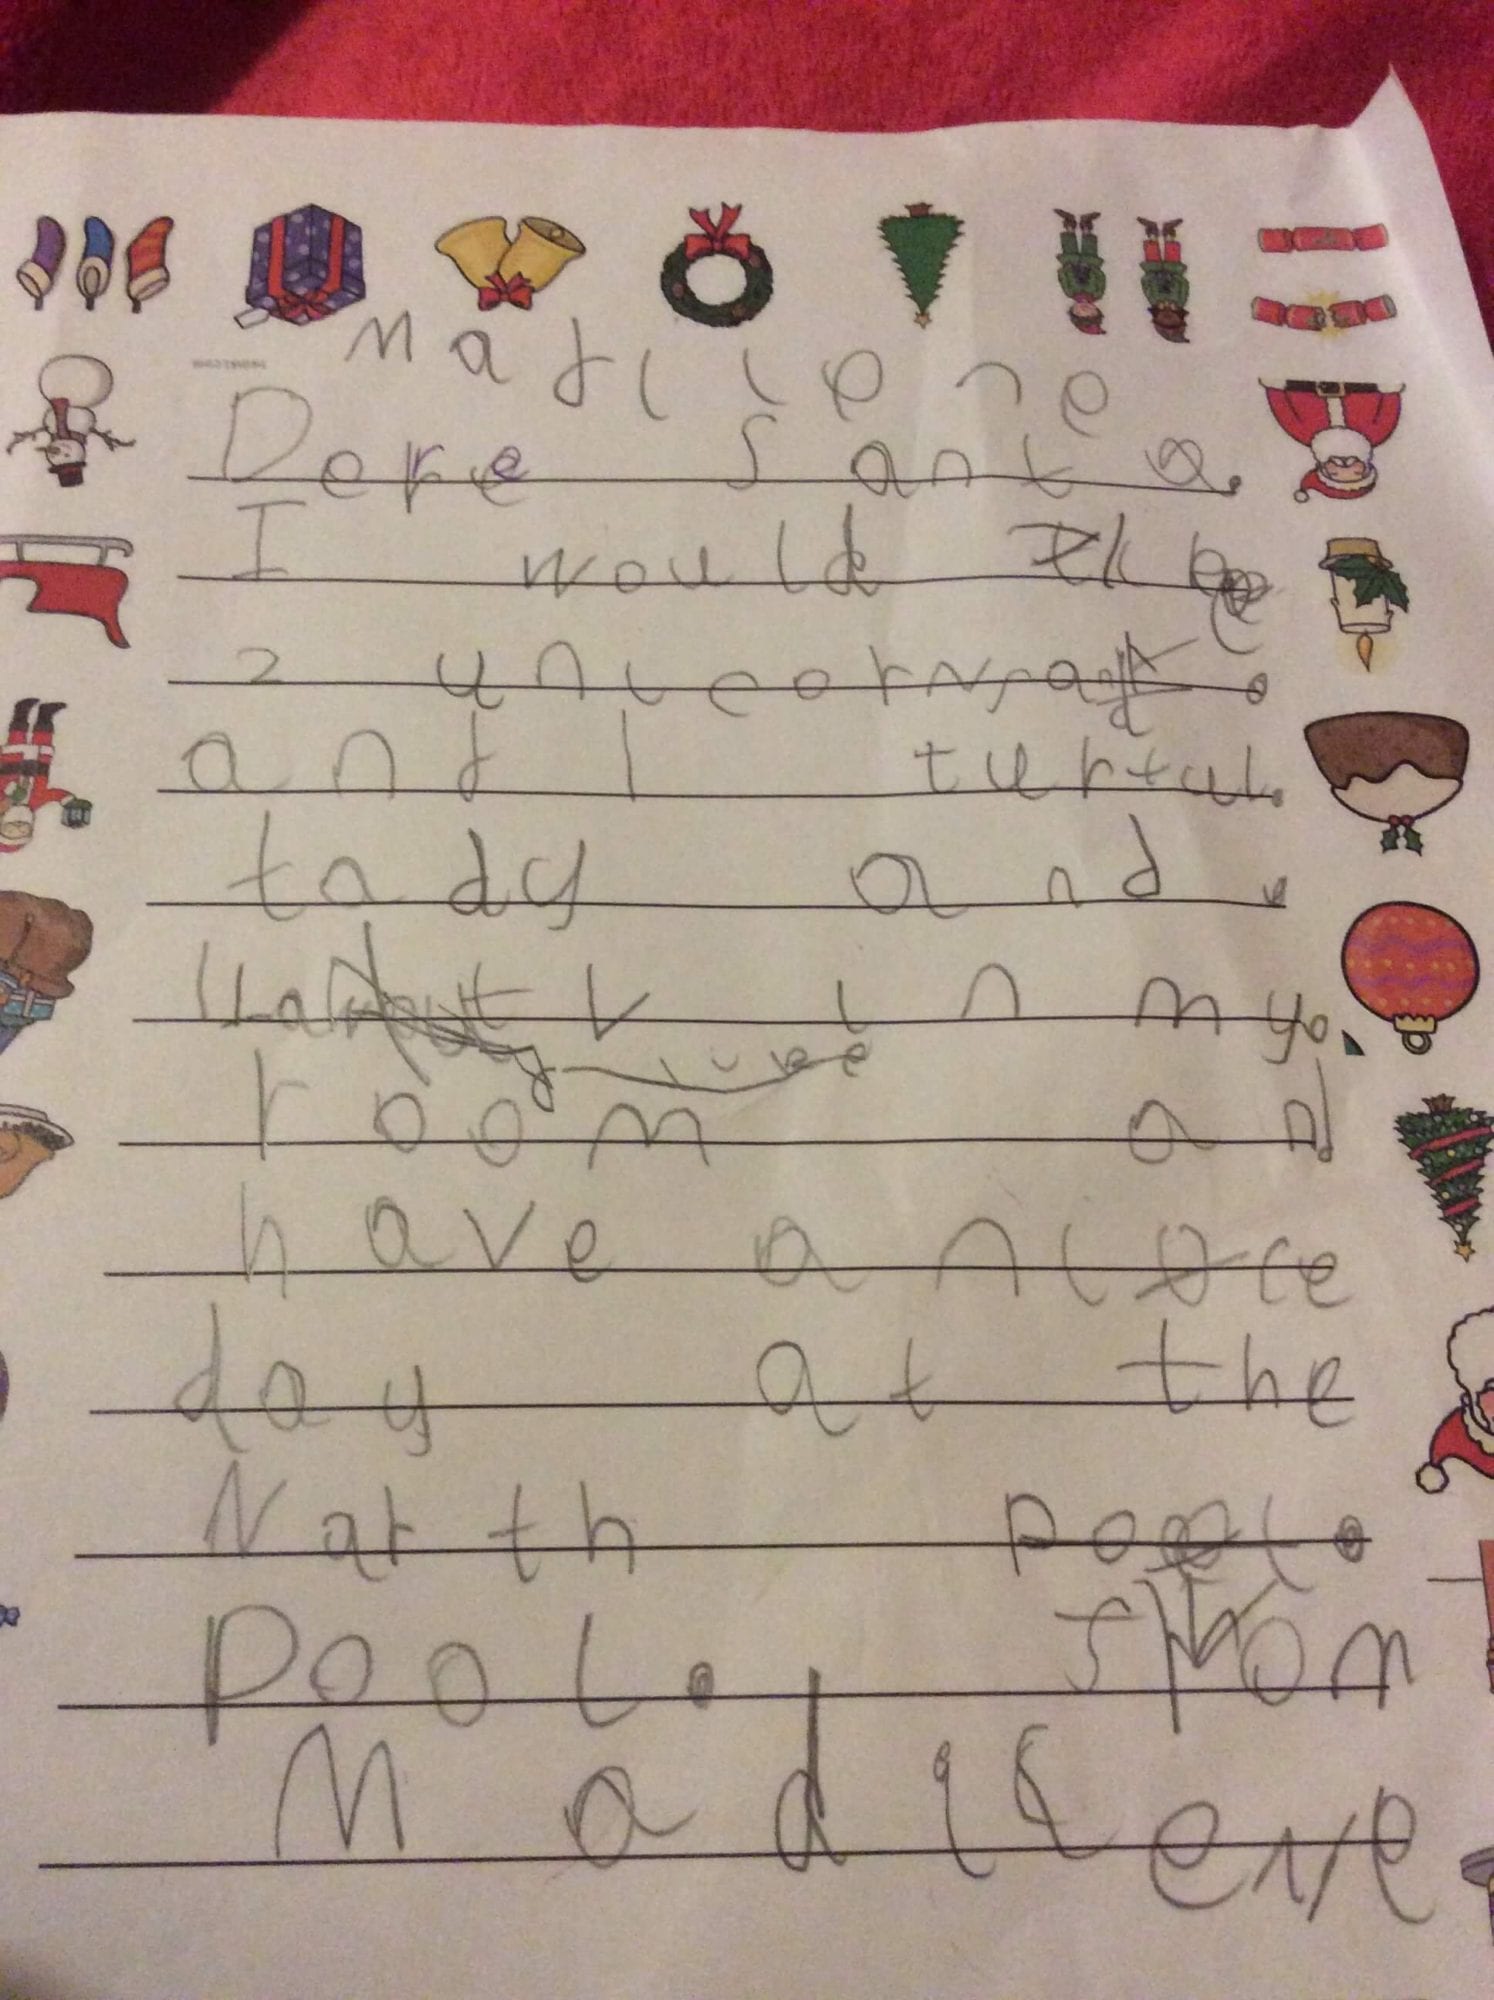 Madilene
Dere Santa.
I would
2 unicorns
and 1 turtul.
tady and.
in my.
live
room and
have a nice
day at the
Narth
pool. from
Madilene